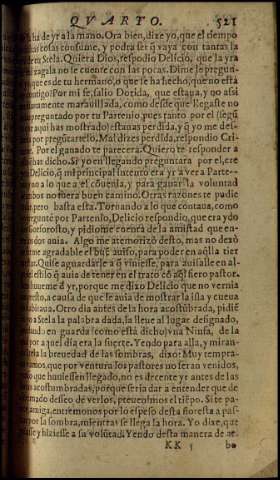 QVARTO. 521
ha de yr a la mano. Ora bien, dize yo, que el tiempo
cosas consume, y podra ser q̃ vaya con tantas la
de tu Stela. Quiera Dios, respodio Delicio, que la yra
zagala no se cuente con las pocas. Dime le pregun-
que es de tu hermano, o que se ha hecho, que no está
contigo? Por mi fe, salio Dorida, que estaua, y no assi
marauillada, como desde que llegaste no
preguntado por tu Partenio, pues tanto por el segũ
aqui has mostrado: estauas perdida, y q̃ yo me deli-
preguntartelo. Mal dizes perdida, respondio Cri-
Por el ganado te parecera. Quiero te responder a
has dicho. Si yo en llegando preguntara por el, cree
Delicio, q̃ mi principal intento era yr a ver a Parte-
no a lo que a el cõuenia, y para ganar la voluntad
ambos no fuera buen camino. Otras razones te pudie
pero basta esta. Tornando a lo que contaua, como
pregunté por Partenio, Delicio respondio, que era ydo
Gorforosto, y pidiome cuenta de la amistad que en-
auia. Algo me atemorizó desto, mas no dexó
agradable el bué auiso, para poder en aq̃lla tier
Quise aguardarle a q̃ viniesse, para auisalle en al-
estilo q̃ auia de tener en el trato cõ aq̃l fiero pastor.
huueme d̃ yr, porque me dixo Delicio que no vernia
presto, a causa de que le auia de mostrar la isla y cueua
habitaua. Otro dia antes de la hora acostũbrada, pidiẽ
a Stela la palabra dada, la lleue al lugar designado,
en guarda (como está dicho) vna Ninfa, de la
por aquel dia era la suerte. Yendo para allá, y miran-
la breuedad de las sombras, dixo: Muy tempra-
vamos, que por ventura los pastores no seran venidos,
que huuiessen llegado, no es decente yr antes de las
acostumbradas, porque seria dar a entender que de
deseo de verlos, preuenimos el tiẽpo. Si te pa-
amiga, entremonos por lo espeso desta floresta a pas-
la sombra, mientras se llega la hora. Yo dixe, que
y hiziesse a su volũtad. Yendo desta manera de ar-
KK 5 bo